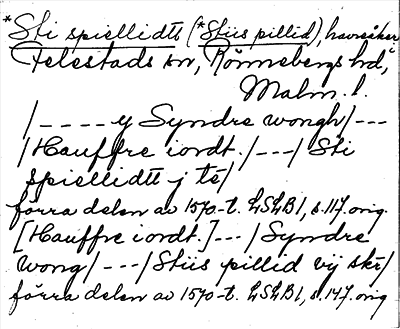 *Sti spiellidtt (*Stiis pillid), havreåker
Felestads sn, Rönnebergs hd,
Malm. l.
/---- y Syndre wongh/---
/Hauffre iordt./---/ Sti
spiellidtt j té/
förra delen av 1570-t. LSLB1, s. 117. orig.
[Hauffre iordt.]---/Syndre
wong/---/Stiis pillid vij skt/
förra delen av 1570-t. LSLB1, s. 147. orig.